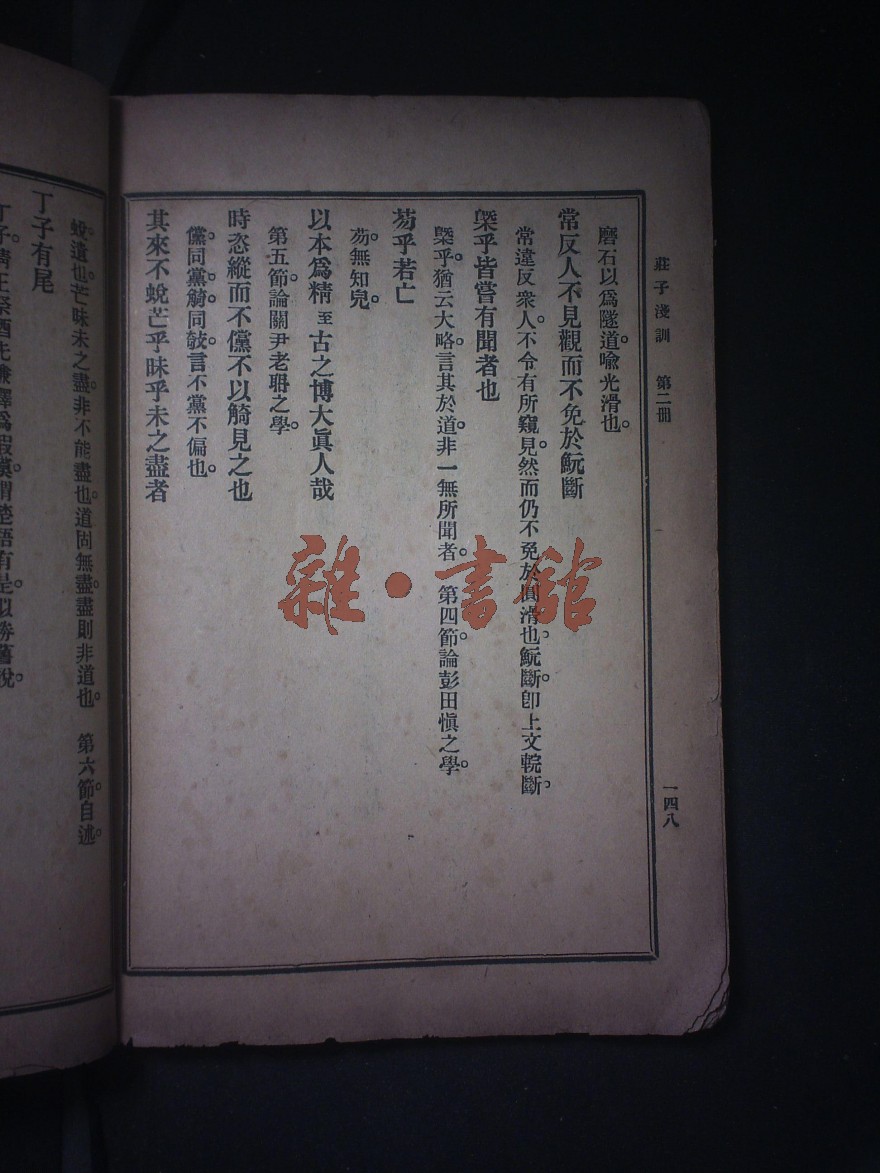 莊子淺訓　第二冊
一四八
磨石以爲隧道。喩光滑也。
常反人不見觀而不免於魭斷
常違反衆人。不令有所窺見。然而仍不免於圓滑也。魭斷。卽上文輐斷。
槩乎皆嘗有聞者也
槩乎。猶云大略。言其於道。非一無所聞者。　第四節。論彭田愼之學。
芴乎若亡
芴。無知皃。
以本爲精至古之博大眞人哉
第五節。論關尹老耼之學。
時恣縱而不儻不以觭見之也
儻。同黨。觭。同攲。言不黨不偏也。
其來不蛻芒乎昧乎未之盡者
蛻。遺也。芒昧未之盡。非不能盡也。道固無盡。盡則非道也。　第六節。自述。
丁子有尾
雜·書館